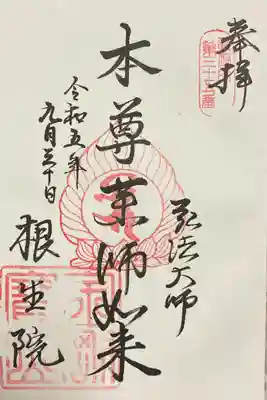 奉拝
第三十五番
弘法大師
本尊薬師如来
令和五年
九月三十日
根生院